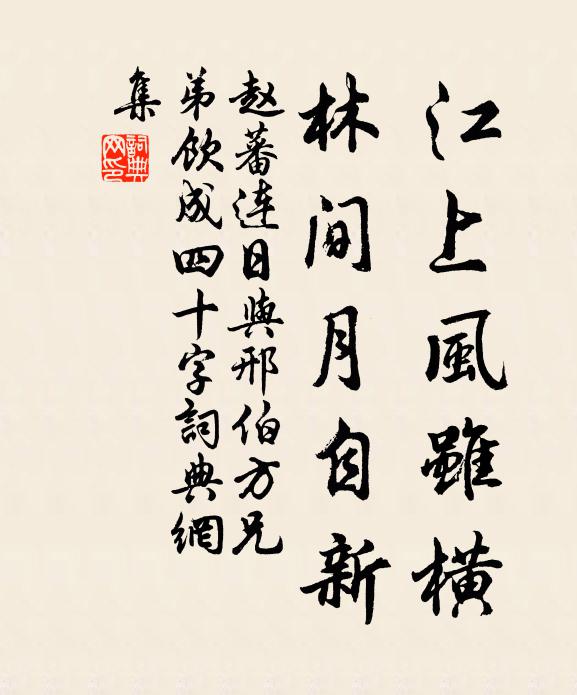 江上風雖橫
林间月自新
赵蕃连日與邢伯方兄
弟飲成四十字詞典網
集
詞典
网印